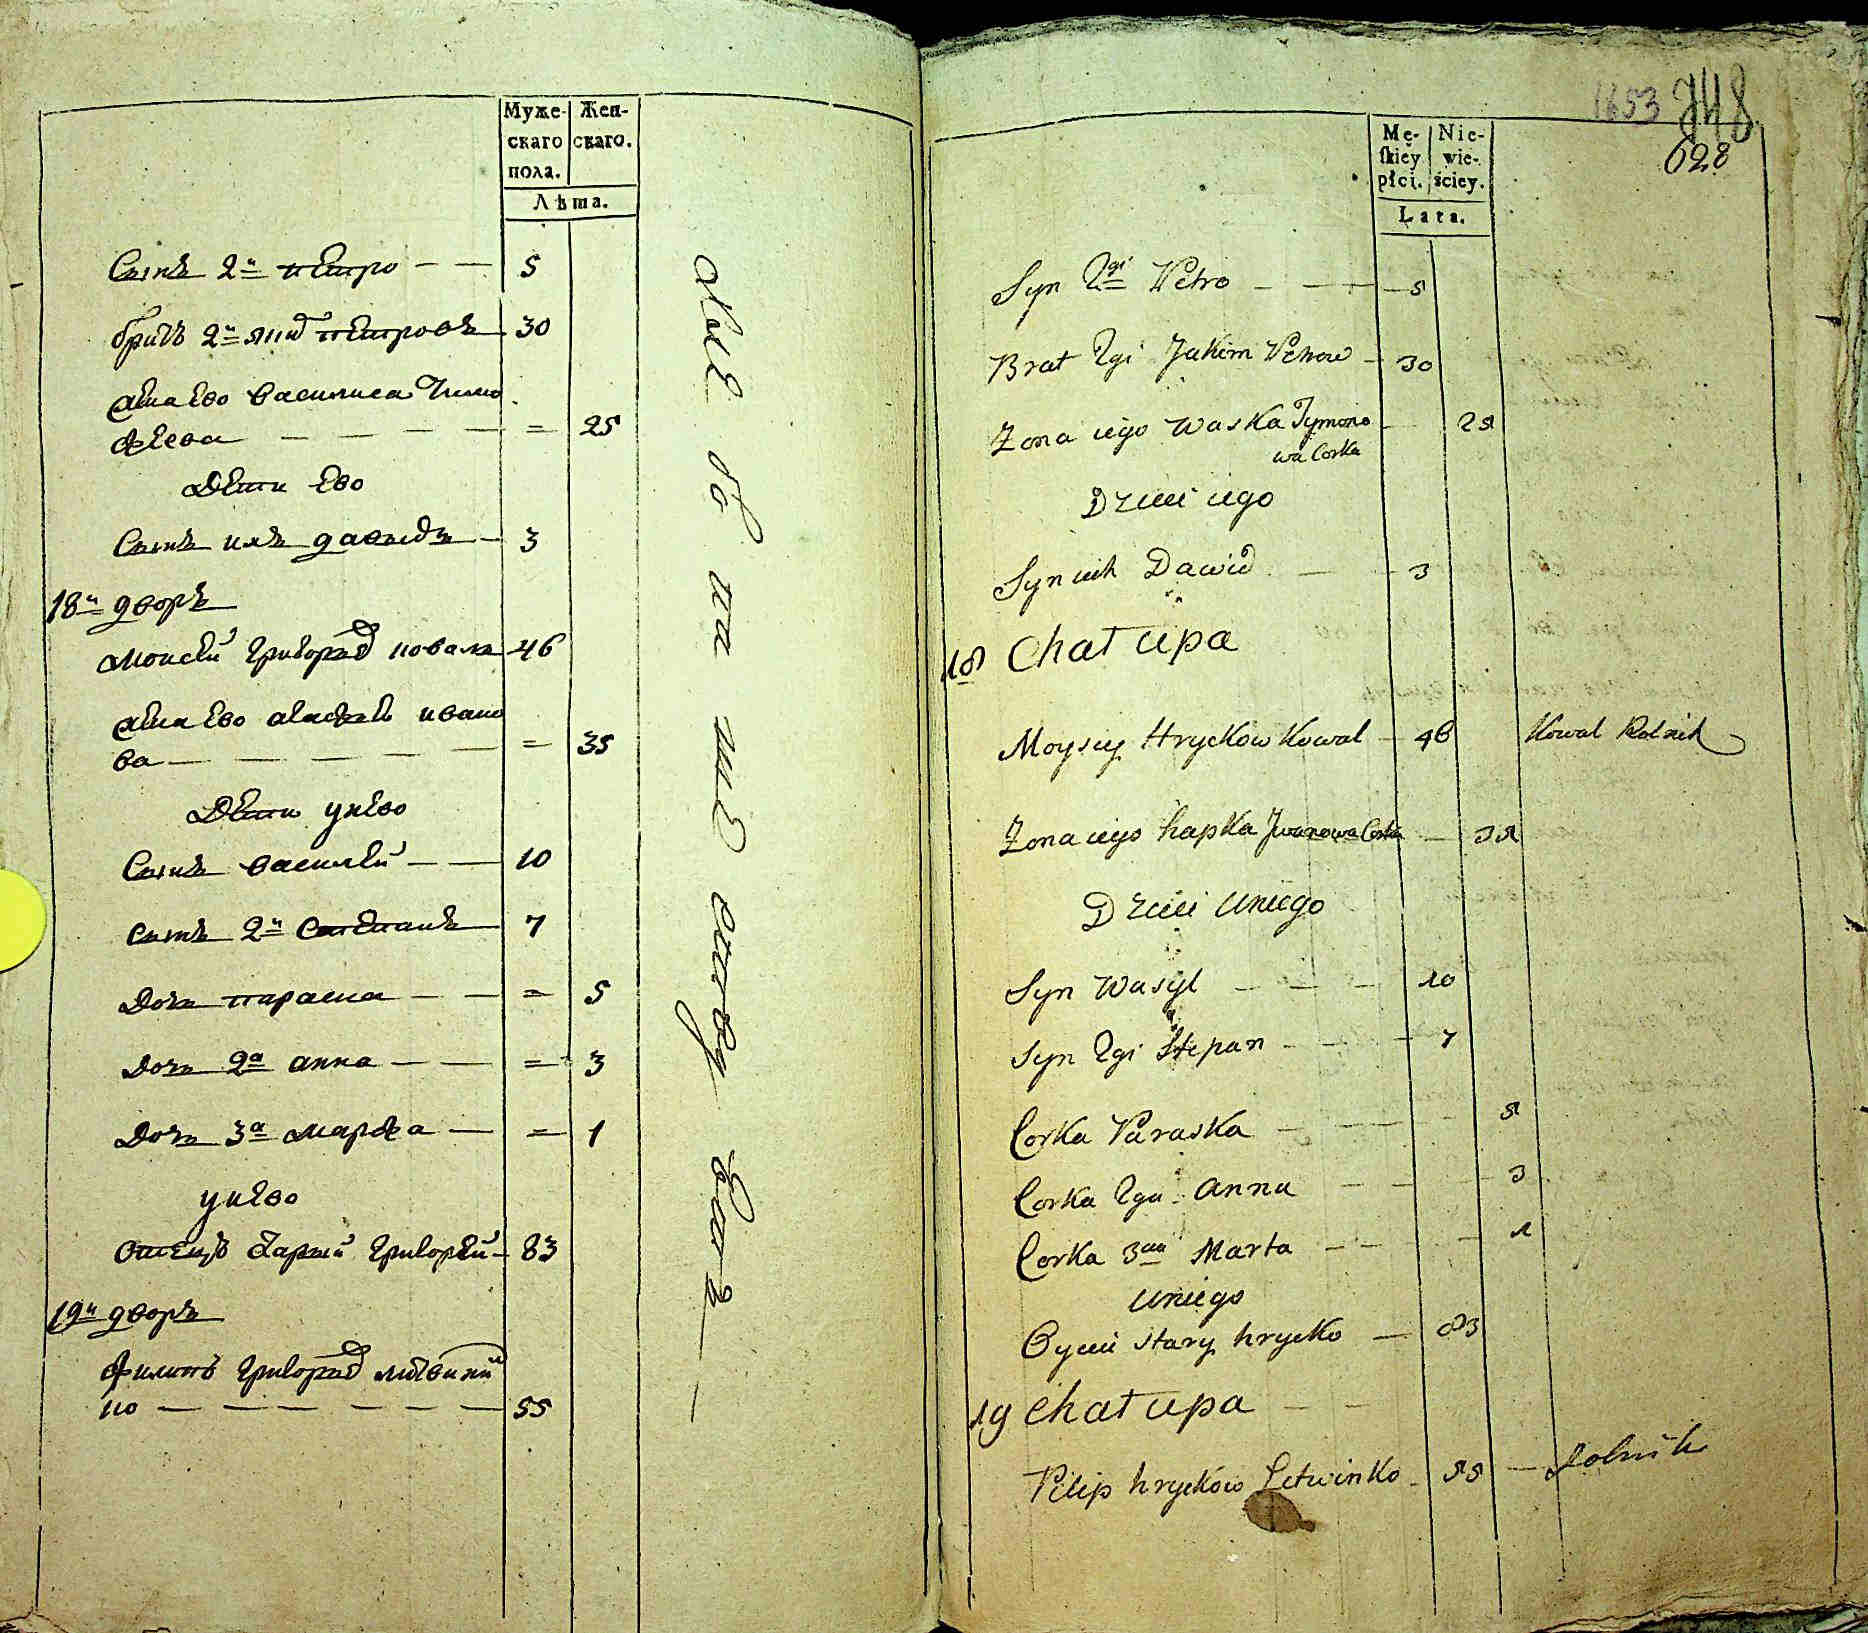 Муже-
скаго
пола.
Жен-
скаго.
Лѣта.
Сынъ 2й петро — — 5
братъ 2й петровъ 30
жена Ево василиса Тимо
феева — — — — = 25
Дети Ево
Сынъ ихъ давыдъ — 3
18й дворъ
моисей григорьев коваль 46
жена Ево ивано
ва — — — — = 35
Дети унево
Сынъ василей — — 10
сынъ 2й степанъ 7
Дочь параска — — = 5
дочь 2а анна — — = 3
Дочь 3а марфа — = 1
унево
отецъ старый григорей — 83
19й дворъ
филипъ григорьев литвинен
ко — — — — — — 55
1653
748
628
Mę-
skiéy
płci.
Nie-
wie-
ściey.
Lata.
Syn 2gi Petro — — — 5
Brat 2gi Jakim Petrow — 30
Zona iego Waska Tymono — 25
wa Corka
Dzieci iego
Syn ich Dawid — — 3
18 Chałupa
Moysiey Hryckow Kowal — 46 Kowal Rolnik
Zona iego hapka Jwanowa Corka — 35
Dzieci Uniego
Syn Wasyl — — — 10
Syn 2gi Stepan — — — 7
Corka Paraska — — — 5
Corka 2ga Anna — — — 3
Corka 3cia Marta — — — 1
Uniego
Oyciec stary hrycko — 83
19 Chałupa — —
Pilip hryckow Litwinko — 55 — Rolnik